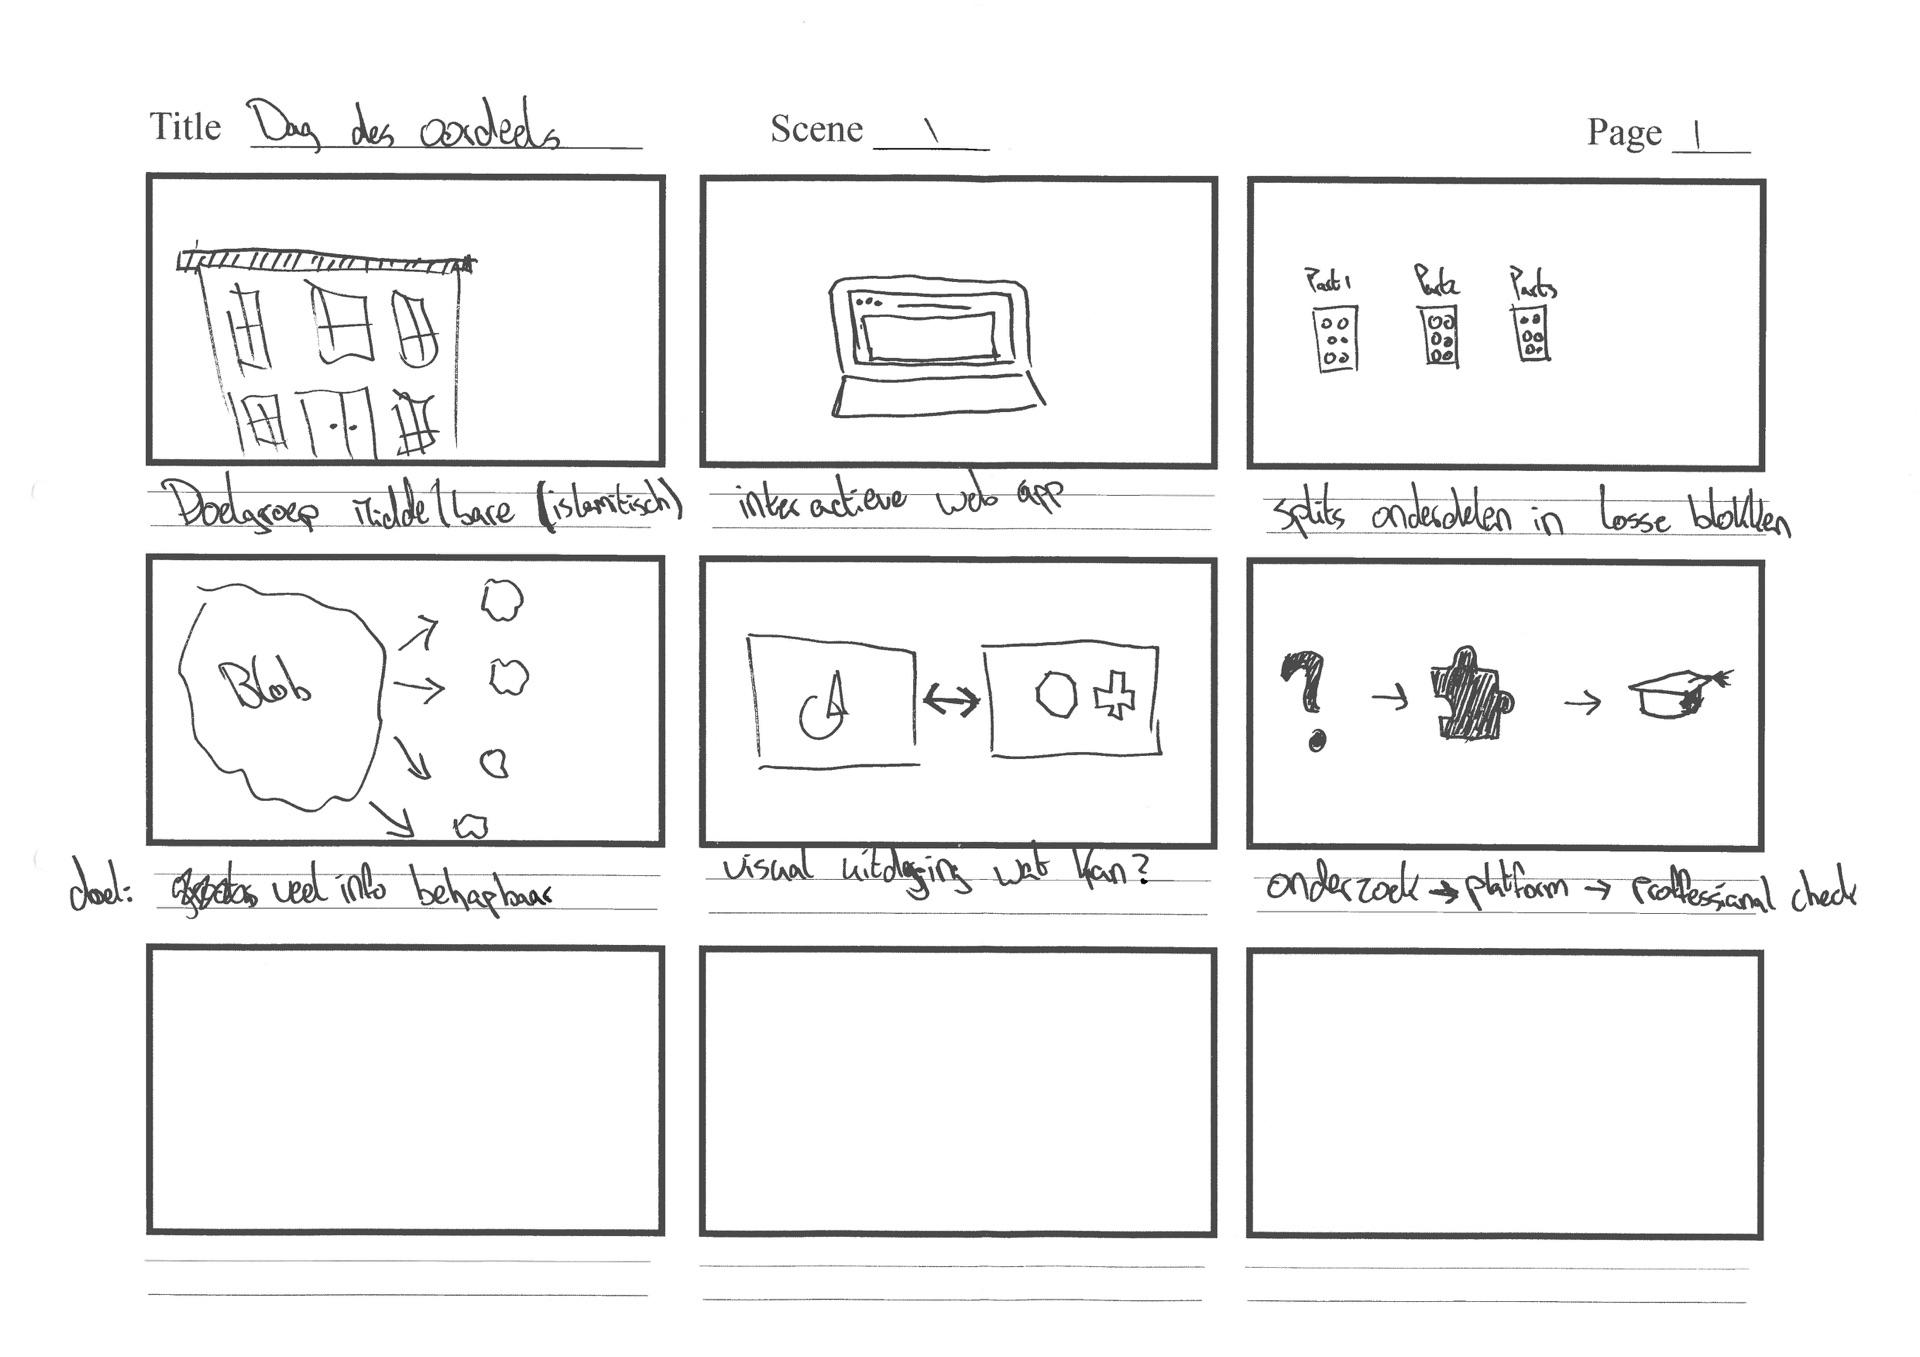 Title Dag des oordeels
Scene 1
Page 1
Part 1 Part 2 Part 3
Doelgroep middelbare (islamitisch)
interactieve web app
splits onderdelen in losse blokken
Blob
?
doel: veel info behapbaar
visual uitdaging wat kan?
onderzoek → platform → Proffessianal check